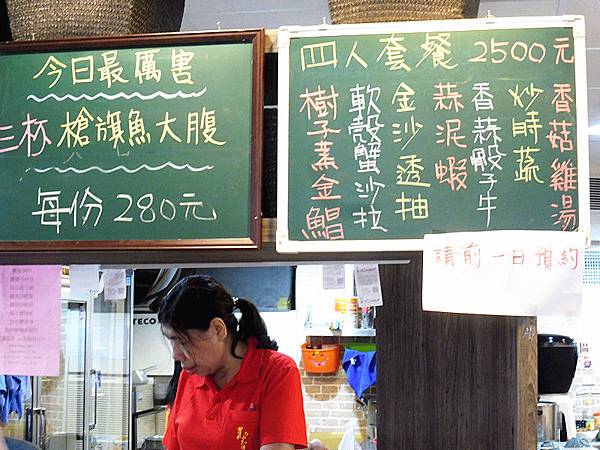 今日最厲害
三杯槍旗魚大腹
每份280元
四人套餐 2500元
香菇雞湯
炒時蔬
香蒜骰子牛
蒜泥蝦
金沙透抽
軟殼蟹沙拉
樹子蒸金鯧
請前一日預約
TECO